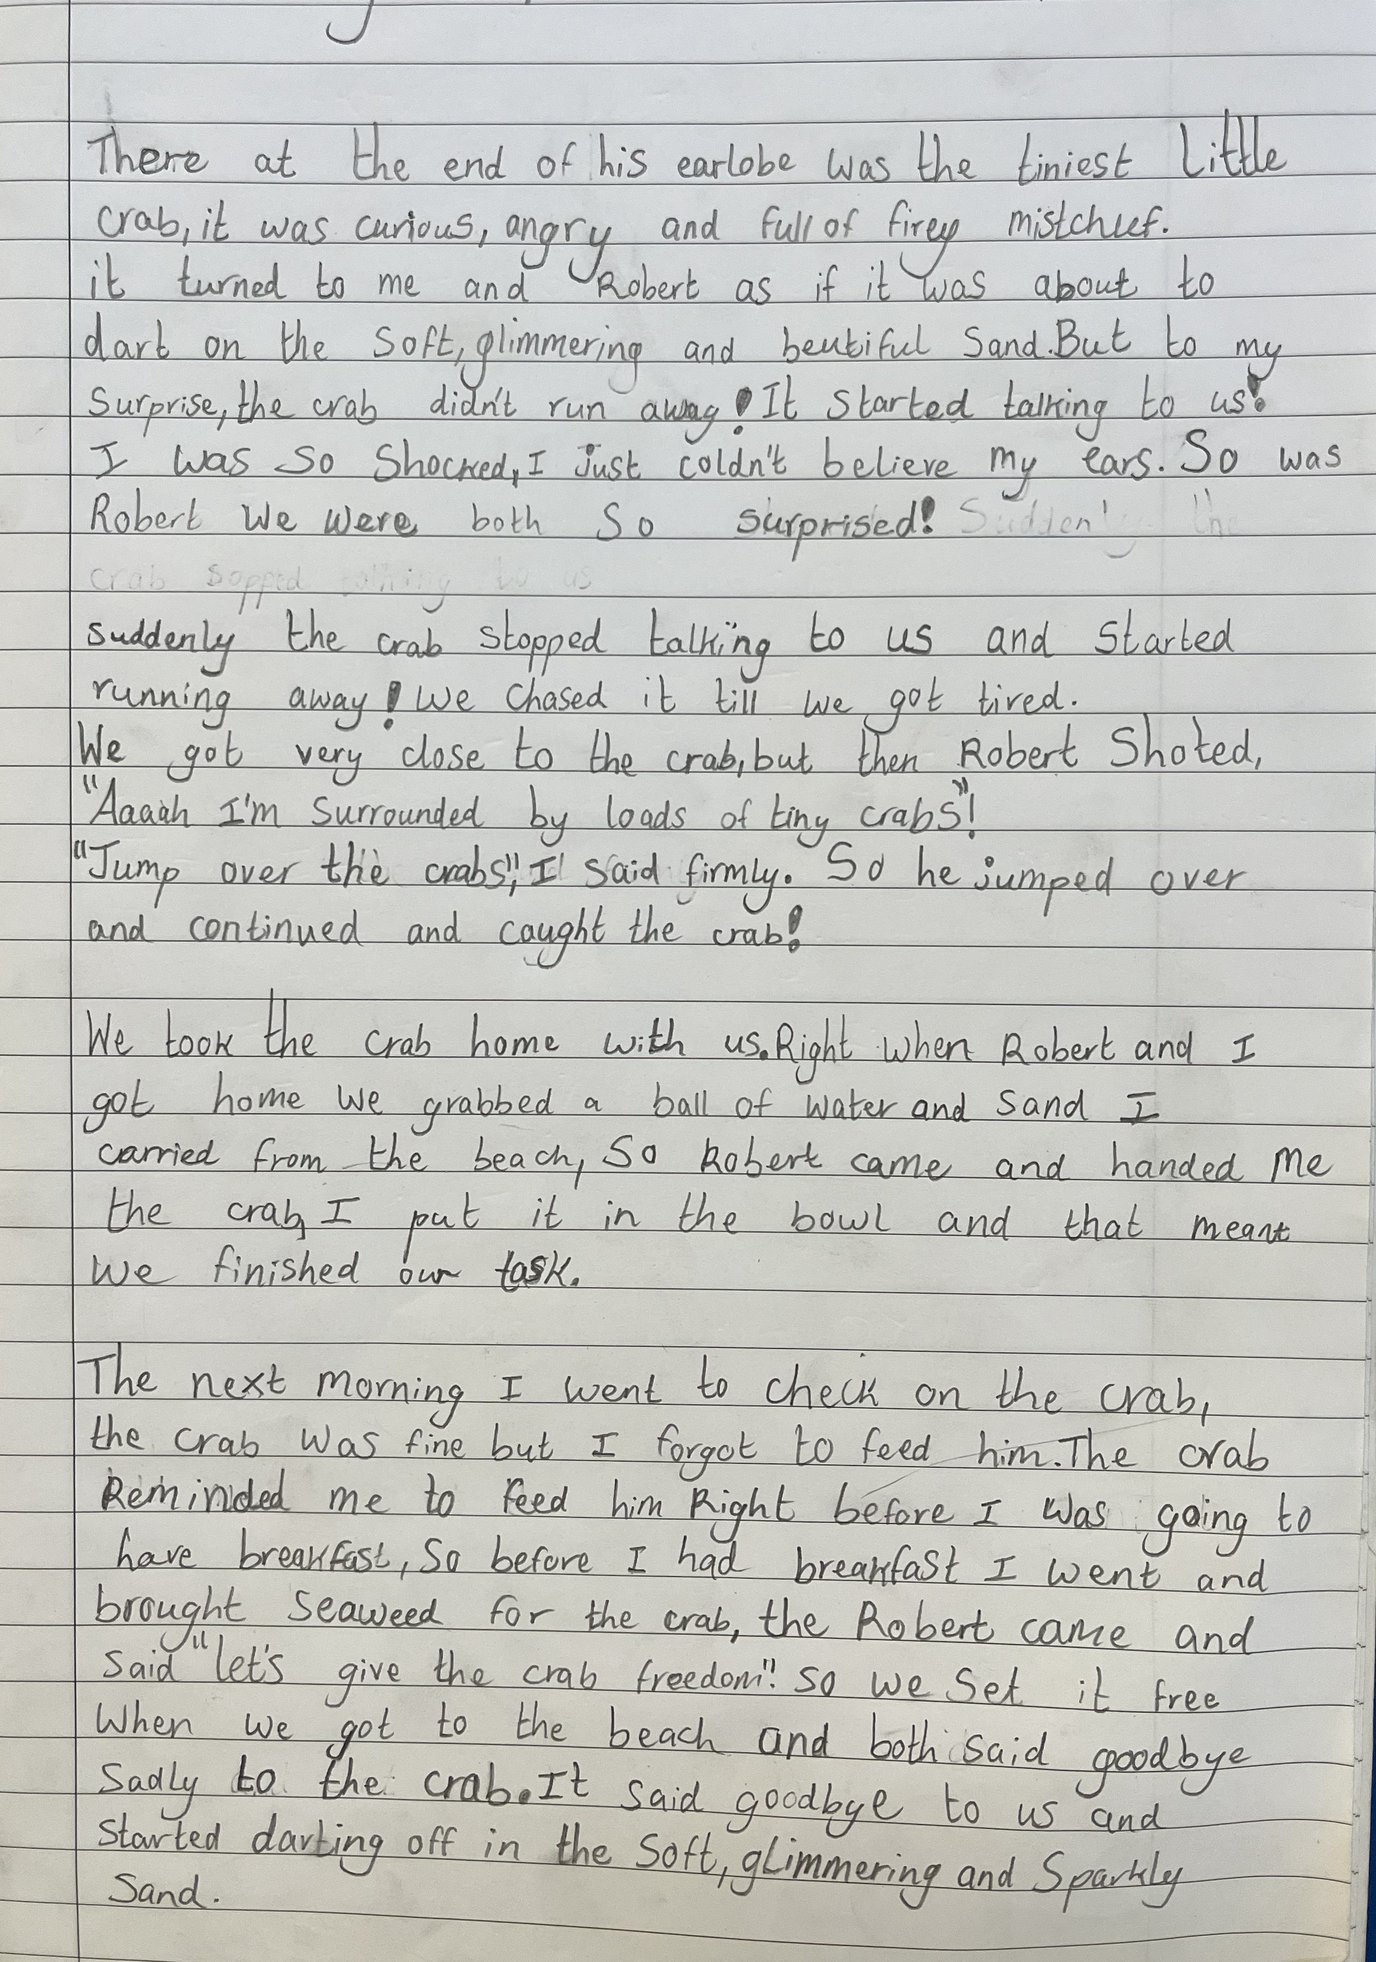 There at the end of his earlobe was the tiniest little
crab, it was curious, angry and full of firey mistchief.
it turned to me and Robert as if it was about to
dart on the soft, glimmering and beutiful sand. But to my
surprise, the crab didn't run away! It started talking to us!
I was so shocked, I just coldn't believe my ears. So was
Robert We were both so surprised! Suddenly the
crab sopped talking to us
suddenly the crab stopped talking to us and started
running away! We chased it till we got tired.
We got very close to the crab, but then Robert Shoted,
"Aaaah I'm surrounded by loads of tiny crabs"!
"Jump over the crabs", I said firmly. So he jumped over
and continued and caught the crab!
We took the crab home with us. Right when Robert and I
got home we grabbed a ball of water and sand I
carried from the beach, So Robert came and handed me
the crab, I put it in the bowl and that meant
we finished our task.
The next morning I went to check on the crab,
the crab was fine but I forgot to feed him. The crab
Reminded me to feed him Right before I was going to
have breakfast, So before I had breakfast I went and
brought seaweed for the crab, the Robert came and
said "let's give the crab freedom". So we set it free
When we got to the beach and both said goodbye
sadly to the crab. It said goodbye to us and
started darting off in the soft, glimmering and sparkly
sand.